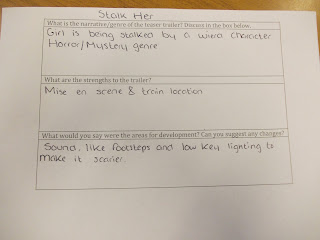 Stalk Her
What is the narrative/genre of the teaser trailer? Discuss in the box below.
Girl is being stalked by a wierd character
Horror/Mystery genre
What are the strengths to the trailer?
Mise en scene & train location
What would you say were the areas for development? Can you suggest any changes?
Sound, like footsteps and low key lighting to
make it scarier.